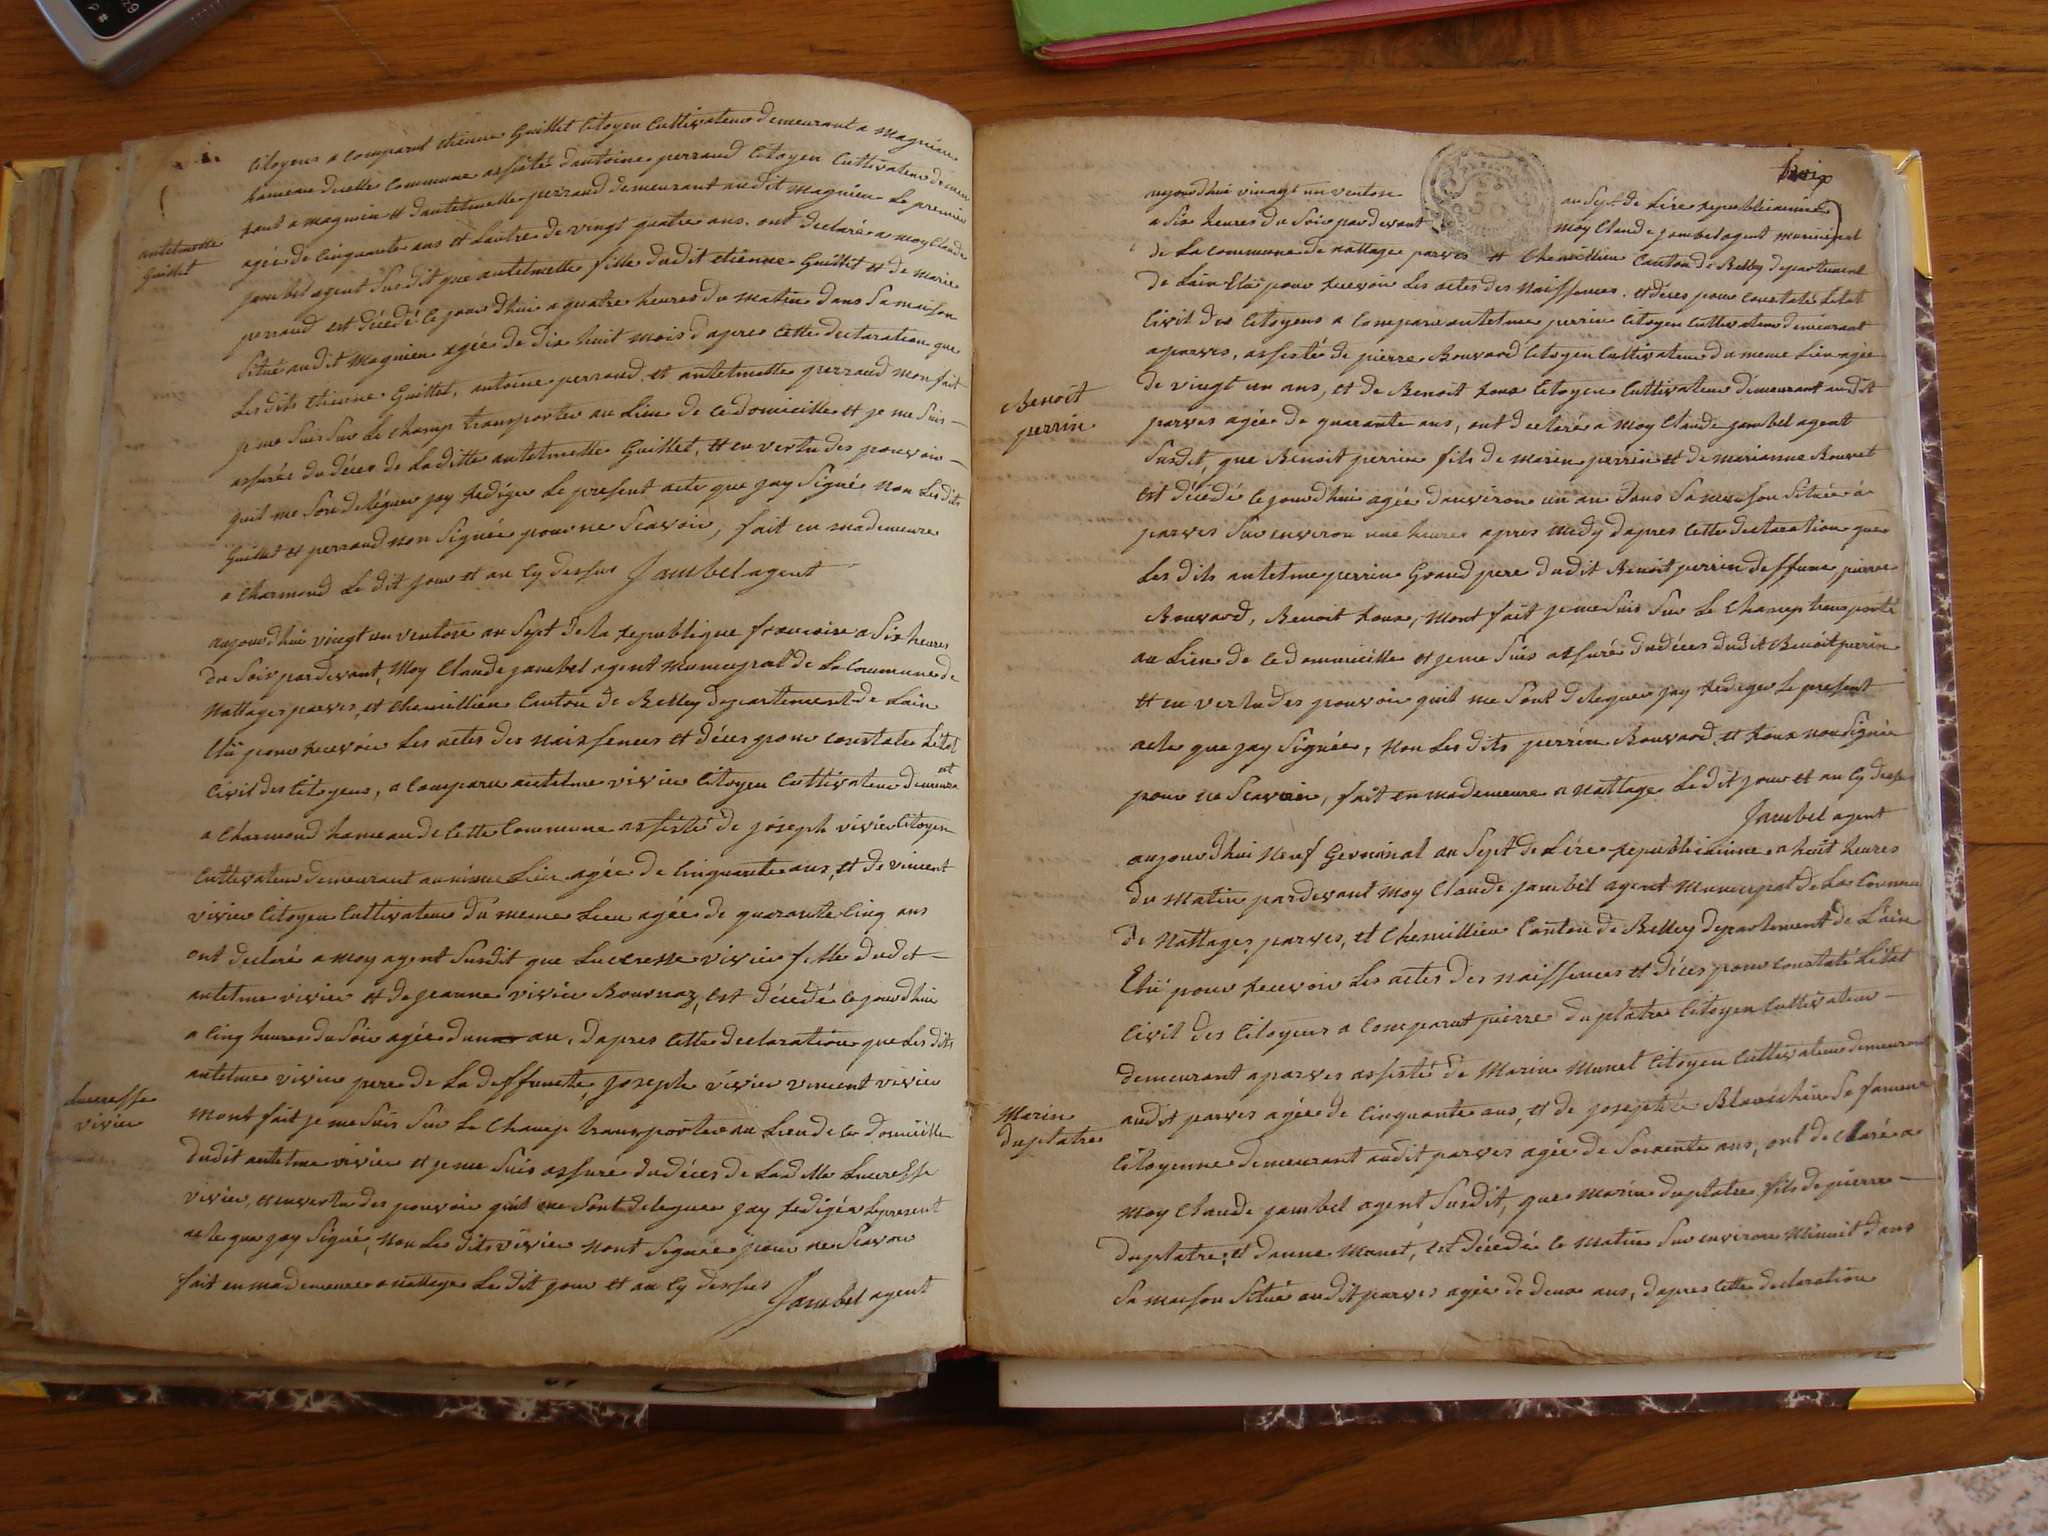 citoyens a comparut etienne Guillet Citoyen Cultivateur demeurant a magnieu
hameau dicelle commune assisté dantoine perraud Citoyen Cultivateur demeu
rant a magnieu et dantelmette perraud demeurant au dit magnieu Le premier
agée de Cinquante ans et Lautre de vingt quatre ans. ont declaré a moy Claude
antelmette
Guillet
jambel agent Susdit que antelmette fille dudit etienne Guillet et de marie
perraud est décédé ce jourdhui a quatre heures du matin dans Sa maison
Situé audit Magnieu agée de dix huit mois dapres Cette declaration que
Lesdits etienne Guillet, antoine perraud, et antelmette perraud mon fait
je me Suis Sur Le Champ transporter au Lieu de ce domicille et je me Suis —
assurée du déces de Laditte antelmette Guillet, et en vertu des pouvoir —
quil me Son deléguer jay Rédiger Le present acte que jay Signé non Lesdits
Guillet et perraud non Signée pour ne Scavoir, fait en mademeure
a Charmond Le dit jour et an Cy dessus Jambel agent
aujourdhui vingt un ventose an Sept de la Republique francoise a Six heures
du Soir pardevant, Moy Claude jambel agent municipal de La Commune de
Nattages parves, et Chemillieu Canton de Belley departement de Lain
Elû pour recevoir Les actes des naissences et déces pour constater Létat
Civil des Citoyens, a Comparu antelme vivier Citoyen Cultivateur demeurant
a Charmond hameau de Cette Commune assisté de joseph vivier Citoyen
Cultivateur demeurant au même Lieu agée de Cinquante ans, et de vincent
vivier Citoyen Cultivateur du meme Lieu agée de quarante Cinq ans
ont declaré a moy agent Susdit que Lucresse vivier fille dudit —
antelme vivier et de jeanne vivier Bournaz, est décédé ce jourdhui
a Cinq heures du Soir agée dun an, dapres Cette declaration que Les dits
antelme vivier pere de La deffunctte, joseph vivier vincent vivier
Lucresse
vivier
mont fait je me Suis Sur Le Champ transporter au Lieu de ce domicille
dudit antelme vivier et je me Suis assure du déces de Laditte Lucresse
vivier, et en vertu des pouvoir quil me Sont deleguer jay Redigér Le present
acte que jay Signé, non Les dits vivier nont Signée pour ne Scavoir
fait en mademeure a nattage Le dit jour et an Cy dessus
Jambel agent
aujourdhui vingt un ventose an Sept de Lére republicainne
a Six heures du Soir pardevant moy Claude jambel agent municipal
de La Commune de nattage parves et Chemillieu Canton de Belley departement
de Lain Elû pour recevoir Les actes des Naissences et déces pour Constaté Letat
Civil des Citoyens a Comparu antelme perrin Citoyen Cultivateur demeurant
a parves, assisté de pierre Bouvard Citoyen Cultivateur du meme Lieu agée
Benoît
perrin
de vingt un ans, et de Benoit Roux Citoyen Cultivateur demeurant audit
parves agée de quarante ans, ont declaré a Moy Claude jambel agent
Susdit, que Benoit perrin fils de marin perrin et de marianne Bouvet
est décédé ce jourdhui agée denviron un an dans Sa maison Située à
parves Sur environ une heures apres midy dapres Cette declaration que
Les dits antelme perrin Grand pere dudit Benoit perrin deffunc, pierre
Bouvard, Benoit Roux, Mont fait je me Suis Sur Le Champ transporté
au Lieu de ce dommicille et je me Suis assuré du déces dudit Benoit perrin
et en vertu des pouvoir quil me Sont deleguer jay Rediger Le present
acte que jay Signée, non Les dits perrin Bouvard et Roux non Signée
pour ne Scavoir, fait en mademeure a Nattage Le dit jour et an Cy dessus
Jambel agent
aujourdhui Neuf Germinal an Sept de Lére republicainne a huit heures
du Matin pardevant moy Claude jambel agent municipal de La Commune
de Nattages, parves, et Chemillieu Canton de Belley departement de Lain
Elû pour recevoir Les actes des naissences et déces pour constaté Létat
Civil des Citoyens a Comparut pierre duplatre Citoyen Cultivateur —
demeurant a parves assisté de Marin Munet Citoyen Cultivateur demeurant
Marin
duplatre
audit parves agée de Cinquante ans, et de josephte Sa femme
Citoyenne demeurant audit parves agée de Soixante ans, ont declaré a
moy Claude jambel agent Susdit, que Marin duplatre fils de pierre —
duplatre, et danne Munet, est décédé ce Matin Sur environ Minuit dans
Sa maison Situé audit parves agée de deux ans, dapres Cette declaration